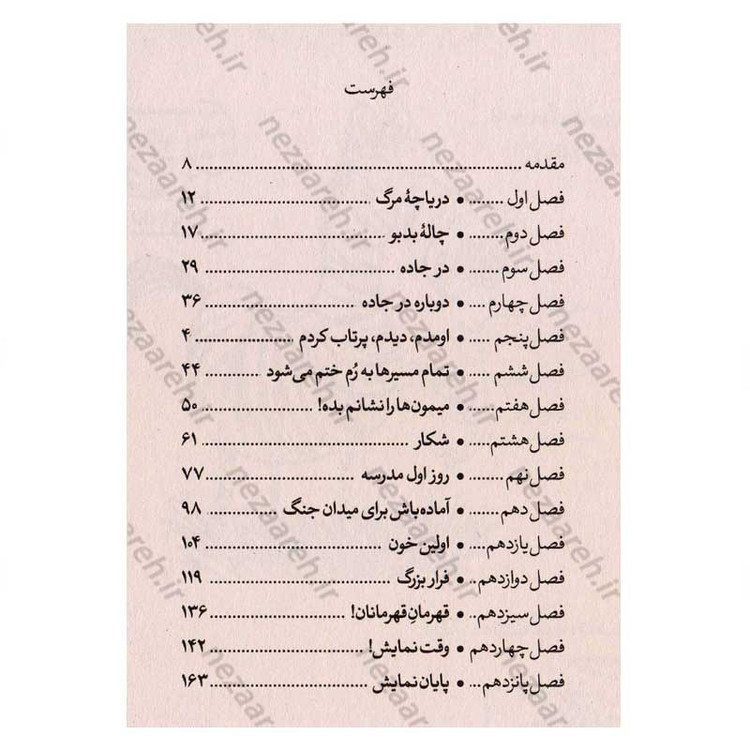 فهرست
مقدمه ........................................................................ ۸
فصل اول ........ • دریاچهٔ مرگ ..................................... ۱۲
فصل دوم ........ • چالهٔ بدبو ........................................ ۱۷
فصل سوم ....... • در جاده .......................................... ۲۹
فصل چهارم .... • دوباره در جاده ................................ ۳۶
فصل پنجم ...... • اومدم، دیدم، پرتاب کردم ...................... ۴
فصل ششم ..... • تمام مسیرها به رُم ختم می‌شود ............ ۴۴
فصل هفتم ...... • میمون‌ها را نشانم بده! ........................ ۵۰
فصل هشتم .... • شکار ............................................. ۶۱
فصل نهم ........ • روز اول مدرسه ................................ ۷۷
فصل دهم ....... • آماده‌باش برای میدان جنگ ................. ۹۸
فصل یازدهم ... • اولین خون .................................... ۱۰۴
فصل دوازدهم .. • فرار بزرگ .................................... ۱۱۹
فصل سیزدهم .. • قهرمانِ قهرمانان! ............................ ۱۳۶
فصل چهاردهم • وقت نمایش! .................................. ۱۴۲
فصل پانزدهم ... • پایان نمایش .................................. ۱۶۳
nezaareh.ir